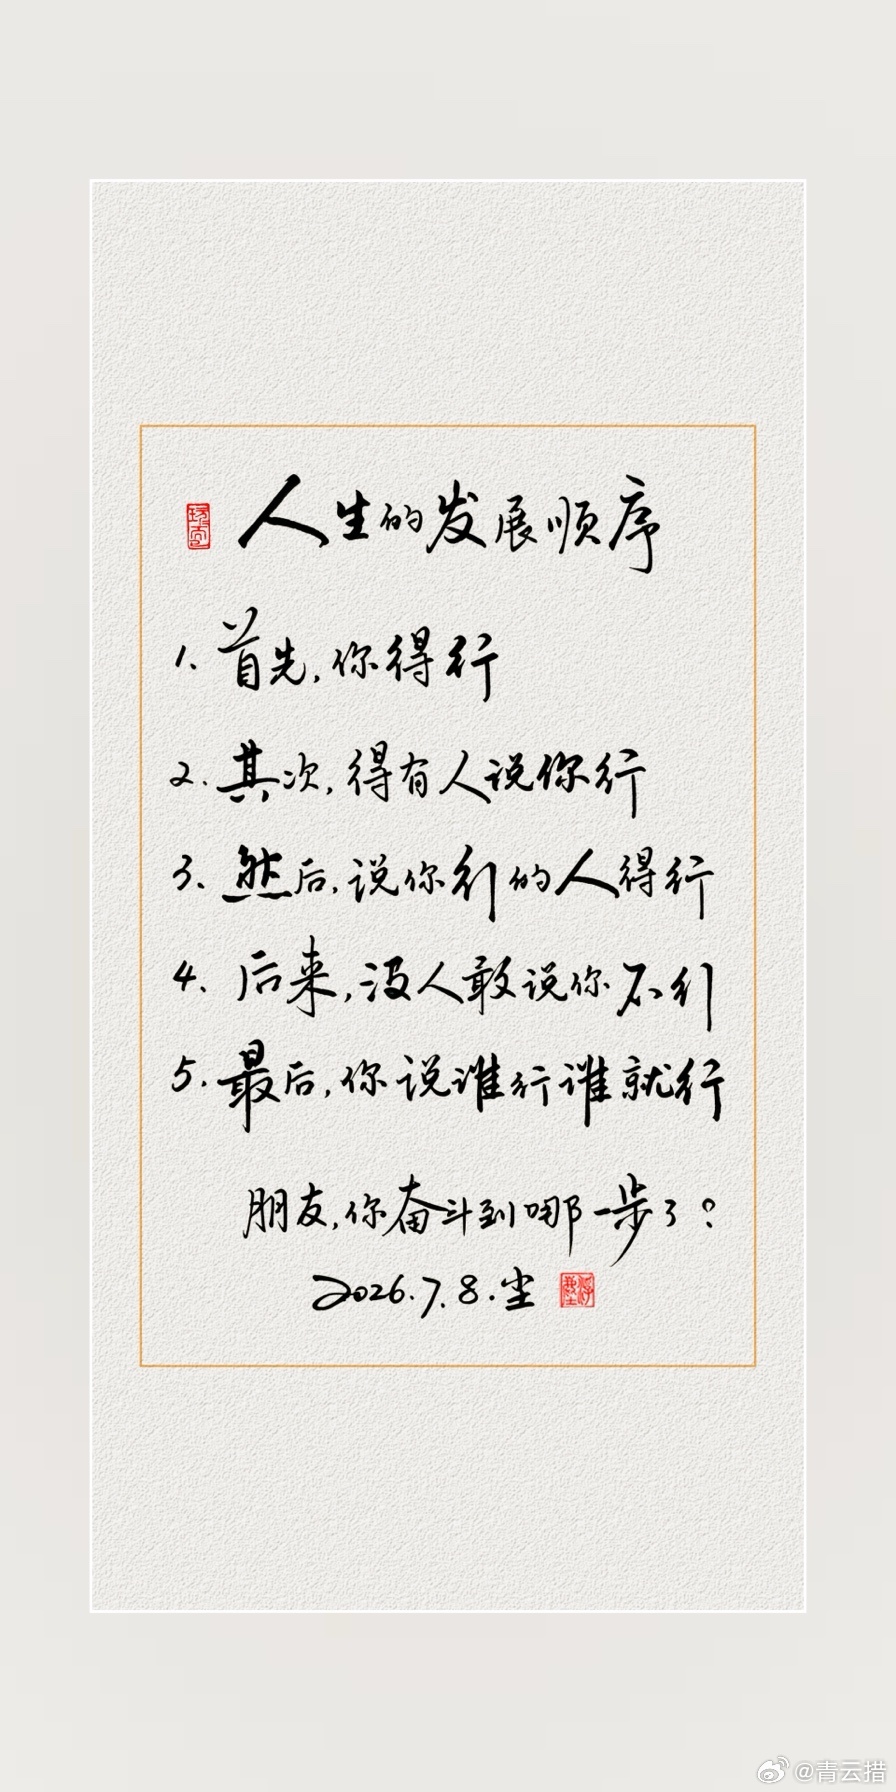 人生的发展顺序
1、首先,你得行
2.其次,得有人说你行
3、然后,说你行的人得行
4、后来,没人敢说你不行
5.最后,你说谁行谁就行
朋友,你奋斗到哪一步了?
2026.7.8.尘
@青云措